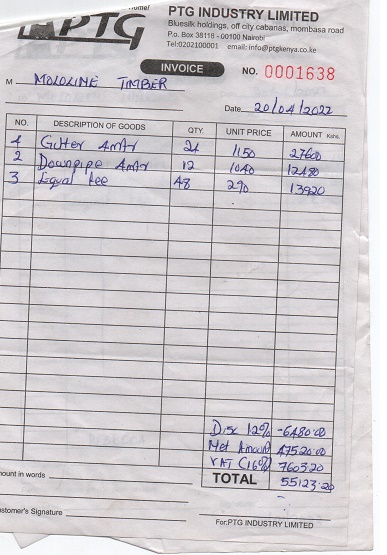 Home!
PTG
PTG INDUSTRY LIMITED
Bluesilk holdings, off city cabanas, mombasa road
P.o. Box 38118 - 00100 Nairobi
Tel:0202100001 email: info@ptgkenya.co.ke
INVOICE NO. 0001638
M MOLOLINE TIMBER
Date 20/04/2022
NO. DESCRIPTION OF GOODS QTY. UNIT PRICE AMOUNT Kshs.
1 Gutter 4mtr 24 1150 27600
2 Downpipe 4mtr 12 1040 12480
3 Equal tee 48 290 13920
Disc 12% -6480.00
Net Amount 47520.00
VAT (16%) 7603.20
TOTAL 55123.20
mount in words
stomer's Signature
For:PTG INDUSTRY LIMITED